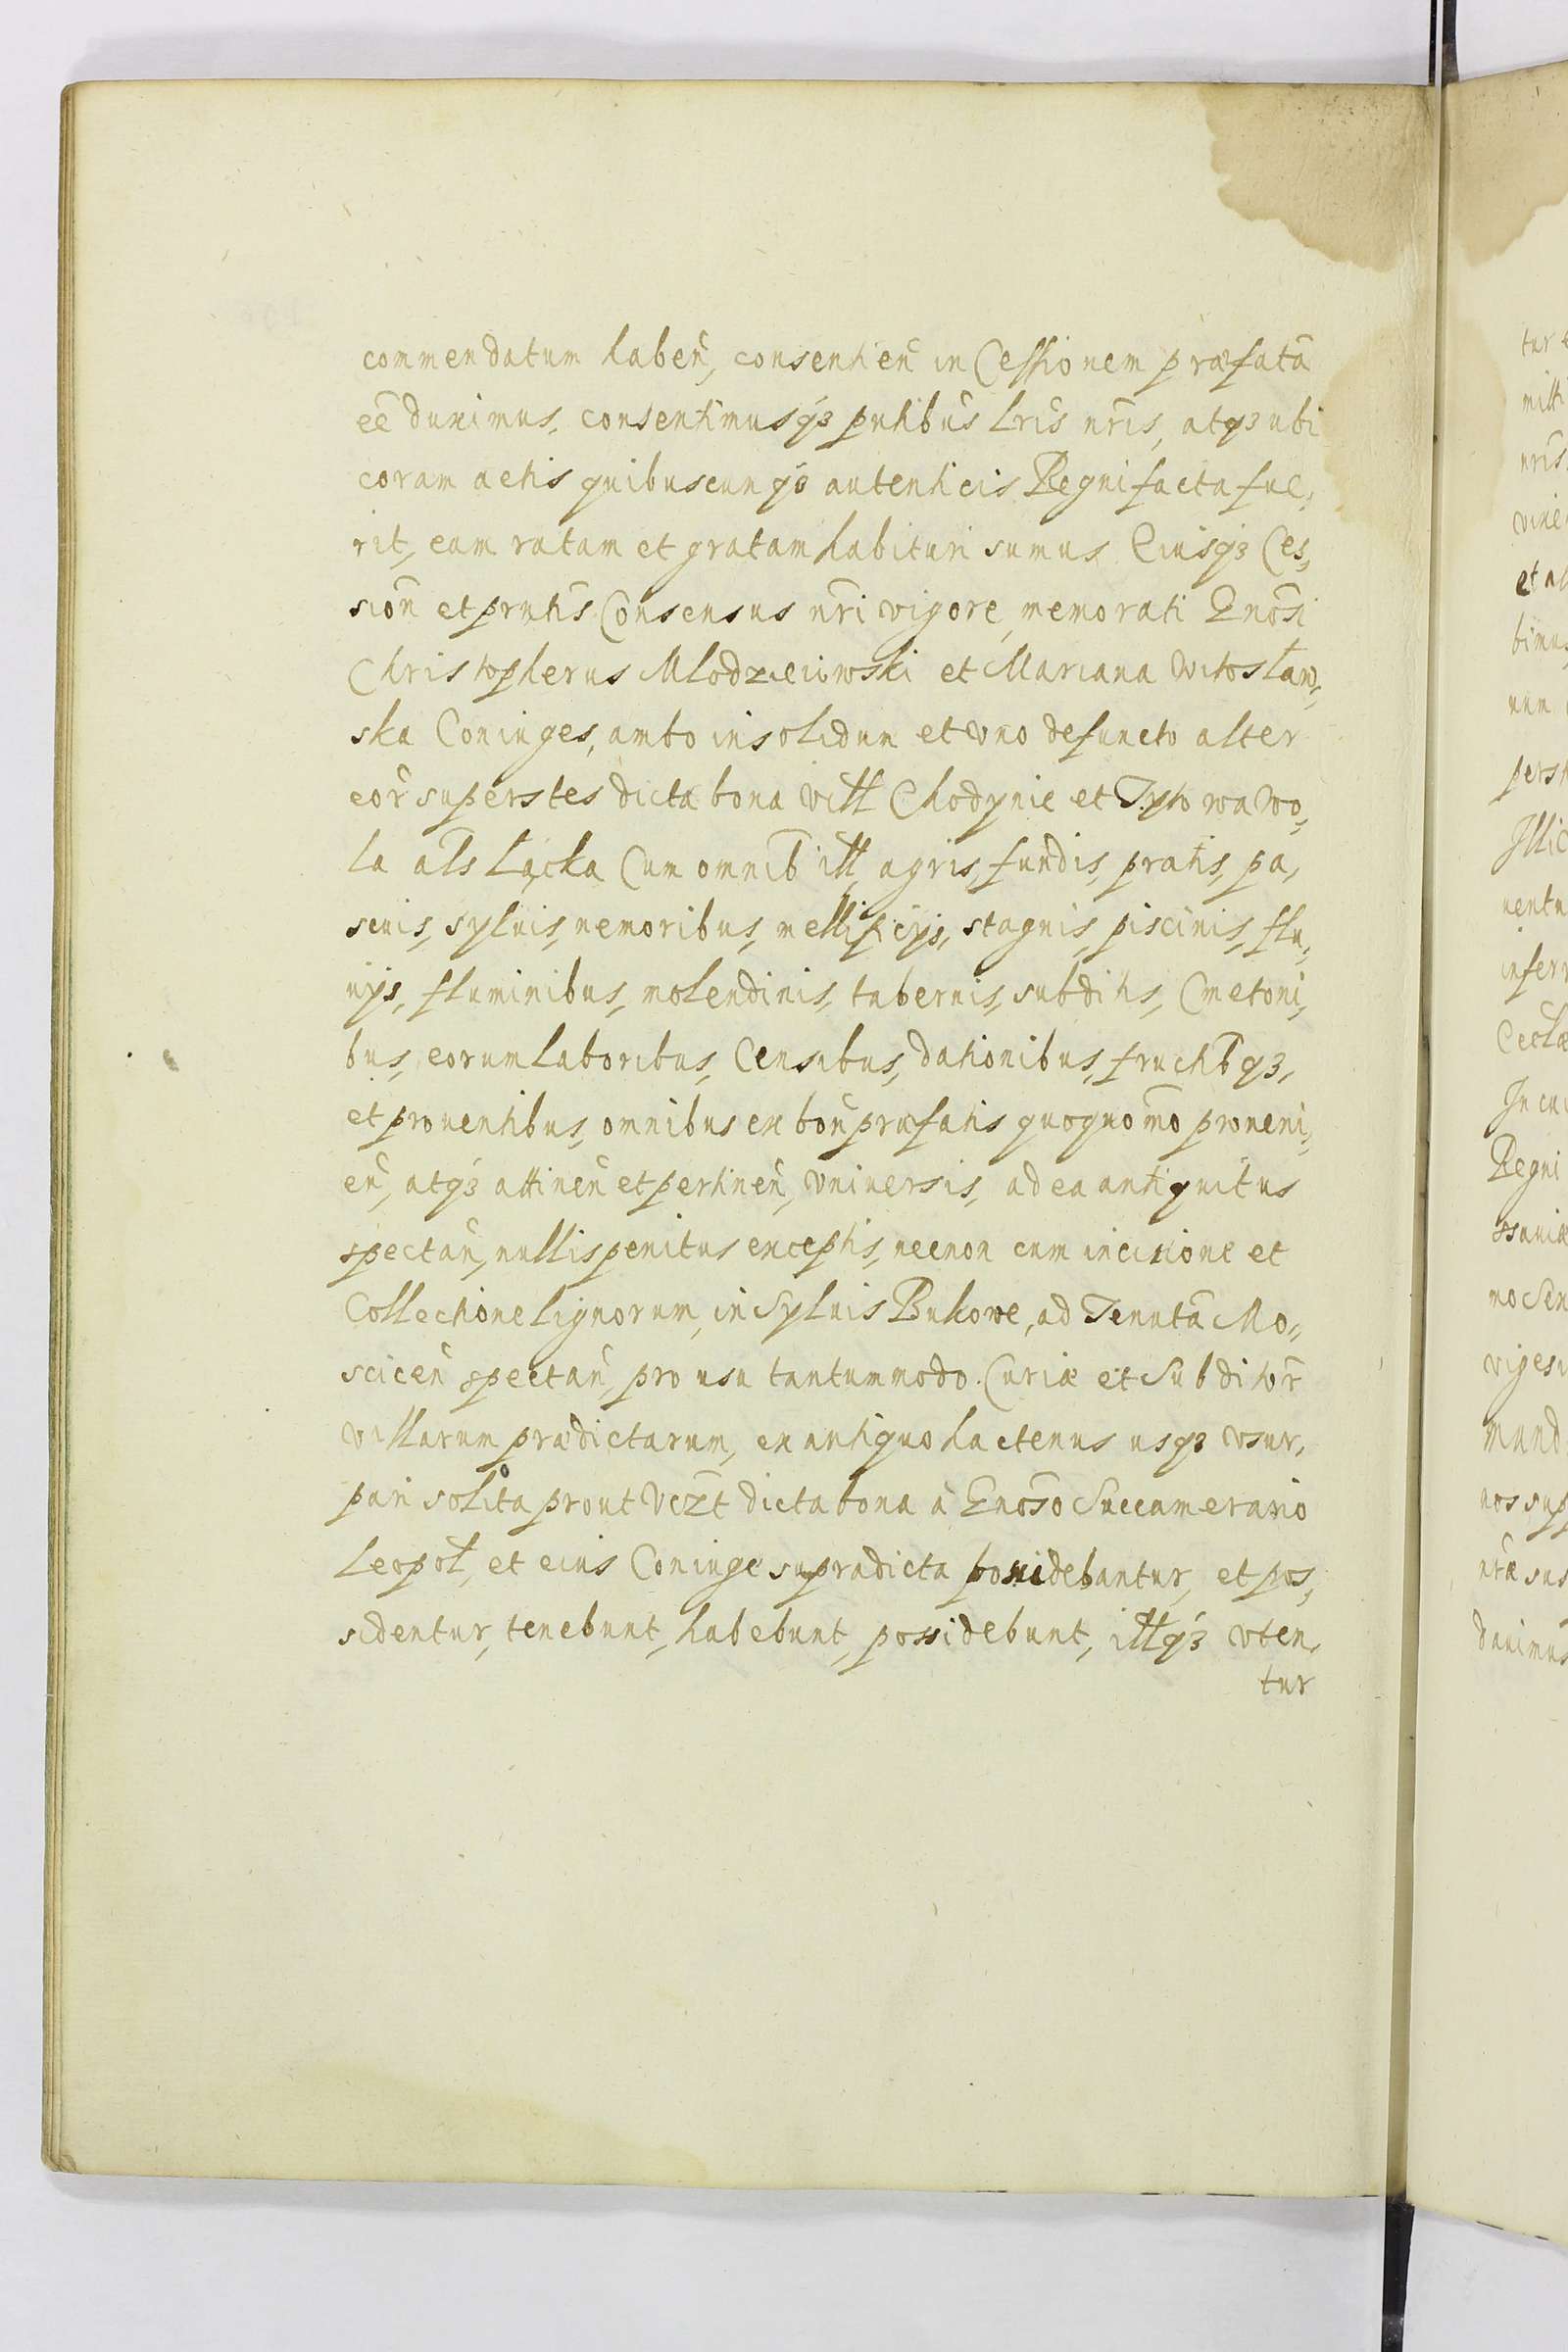 commendatum haben̄, consentien̄ in Cessionem præfatā
eē duximus, consentimusq3 pn̄tibus Lrīs nr̄is, atq3 ubi
coram actis quibuscunq3 autenticis Regni facta fue,
rit, eam ratam et gratam habituri sumus. Eiusq3 Ces,
sion̄ et prn̄tis Consensus nr̄i vigore, memorati Gnōsi
Christopherus Mlodzieiowski et Mariana Witosław,
ska Coniuges, ambo insolidum et vno defuncto alter
eor̄ superstes dicta bona vill Chodynie et Tyto wa Wo,
la als Łącka Cum omnib ill agris, fundis, pratis, pa,
scuis, syluis, nemoribus, mellificijs, stagnis, piscinis, flu,
uijs, fluminibus, molendinis, tabernis, subditis, Cmetoni,
bus, eorum laboribus, Censibus, dationibus, fructib q3,
et prouentibus, omnibus ex bon̄ præfatis quoquomō proueni,
en̄, atq3 attinen̄ et pertinen̄, vniuersis, ad ea antiquitus
spectan̄, nullis penitus exceptis, necnon cum incisione et
Collectione lignorum, in Syluis Bukowe, ad Tenutā Mo,
scicen̄ spectan̄, pro usu tantummodo Curiæ et Subditor̄
villarum prædictarum, ex antiquo hactenus usq3 vsur,
pari solita prout vczt dicta bona à Gnōso Succamerario
Leopol, et eius Coniuge supradicta possidebantur, et pos,
sidentur, tenebunt, habebunt, possidebunt, illq3 vten,
tur
tur
milli
nris
vine
et al
bimus
num
pers
Illic
uentu
infer
Eccłæ
In cu
Regni
no Sen
viges
mund
nos sup
nr̄æ sus
dauimus